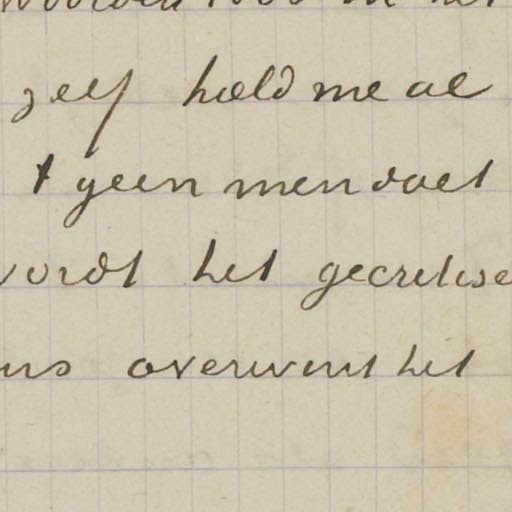 zelf held me al
t geen men doet
wordt het gecretise
ns overwint het